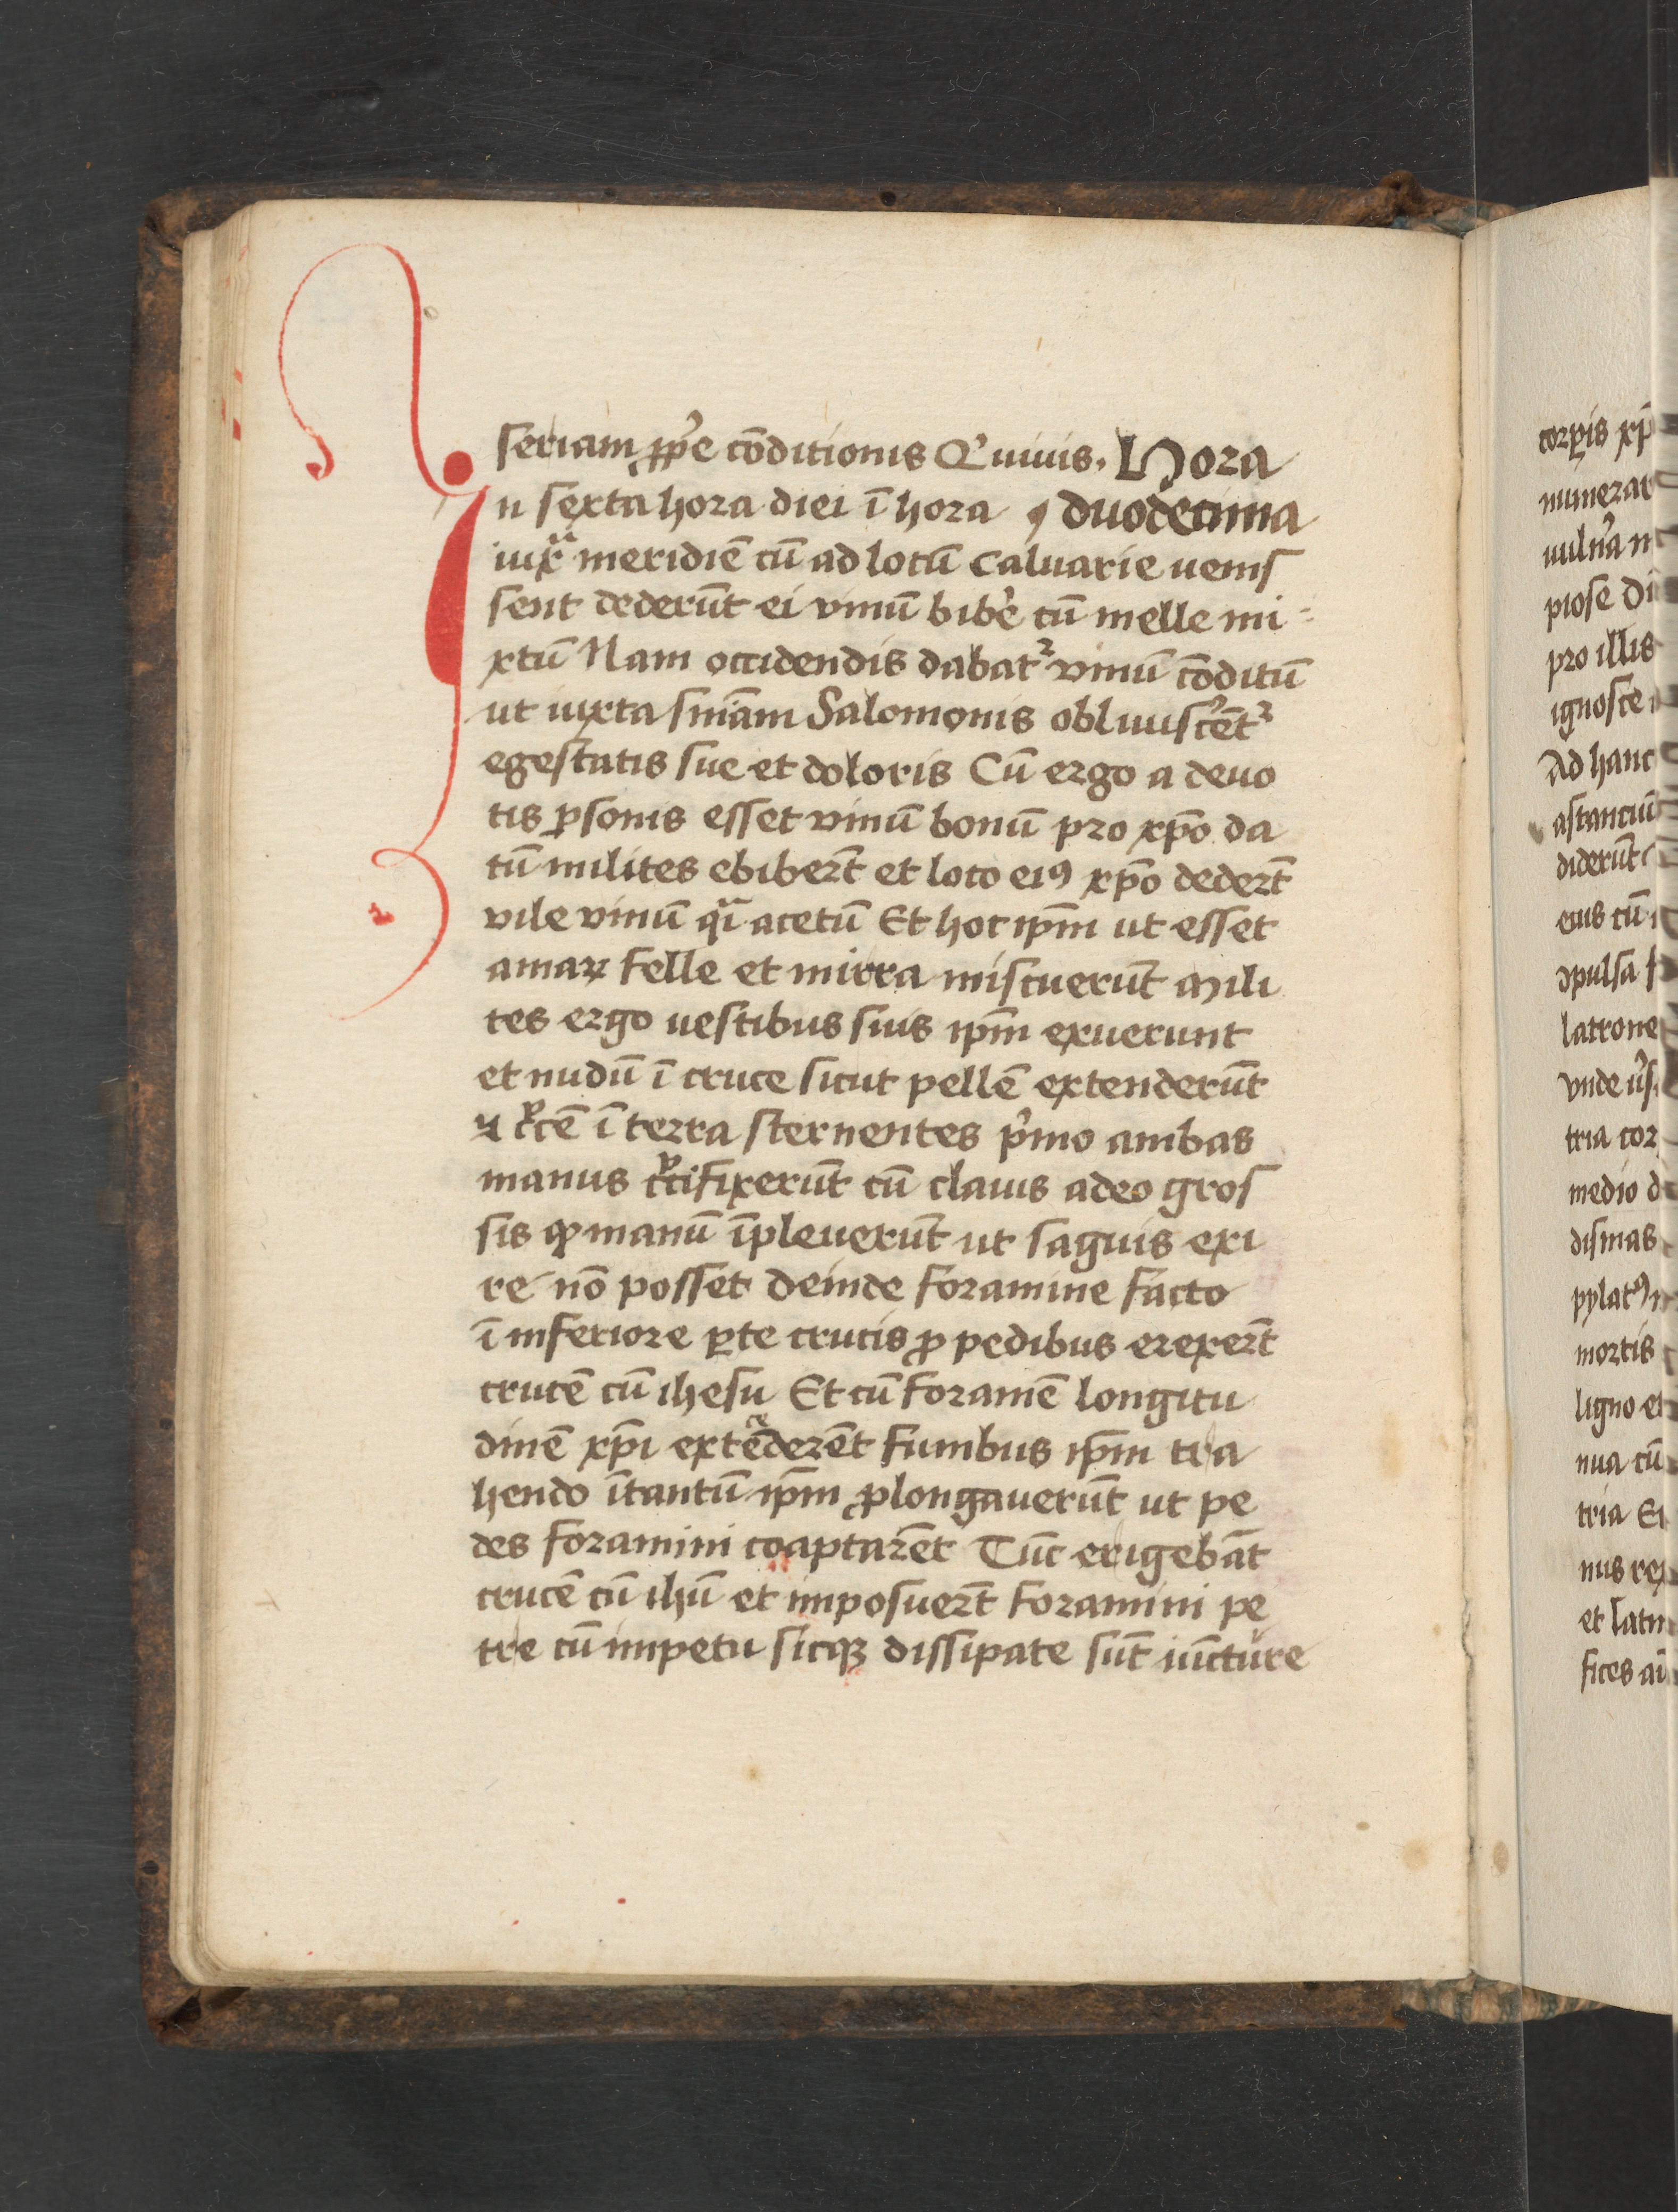 seriam ꝓp̾e cōditionis Q̾ uiuis. Hora
In sexta hora diei ī hora duodecima
iuxᵃ meridiē cū ad locū caluarie uenis
sent dederūt ei vinū bib̾e cū melle mi
xtū Nam occidendis dabat᷑ vinū cōditū
ut iuxta sn̄iam Salomonis obliuiscēt᷑
egestatis sue et doloris Cū ergo a deuo
tis ꝑsonis esset vinū bonū pro xp̄o da
tū milites ebiber̄t et loco eiꝰ xp̄o deder̄t
vile vinū qᵃi acetū Et hoc ip̄m ut esset
amaꝝ felle et mirra miscuerūt Mili
tes ergo uestibus suis ip̄m exuerunt
et nudū ī cruce sicut pellē extenderūt
⁊ cͮcē ī terra sternentes p̾mo ambas
manus cͮcifixerūt cū clauis adeo gros
sis ꝙ manū īpleuerūt ut sāguis exi
re nō posset Deinde foramine facto
ī inferiore ꝑte crucis ꝓ pedibus erexer̄t
crucē cū ihesu Et cū foramē longitu
dinē xp̄i extᵃ ēderēt funibus ip̄m tra
hendo ītantū ip̄m ꝓlongauerūt ut pe
des foramini coaptarēt Tūc erigebāt
crucē cū ihū et imposuer̄t foramini pe
tre cū impetu sicqꝫ dissipate sūt iūcture
corꝑis xp̄
numerar
uuln̾a
piose Di
pro illis
ignosce
Ad hanc
astanciū
diderūt
eius cū
ꝯpulsa
latrone
vnde
tria cor
medio d
dismas
pylatꝰ
mortis
ligno et
nua cū
tria Et
nus rex
et latin
fices